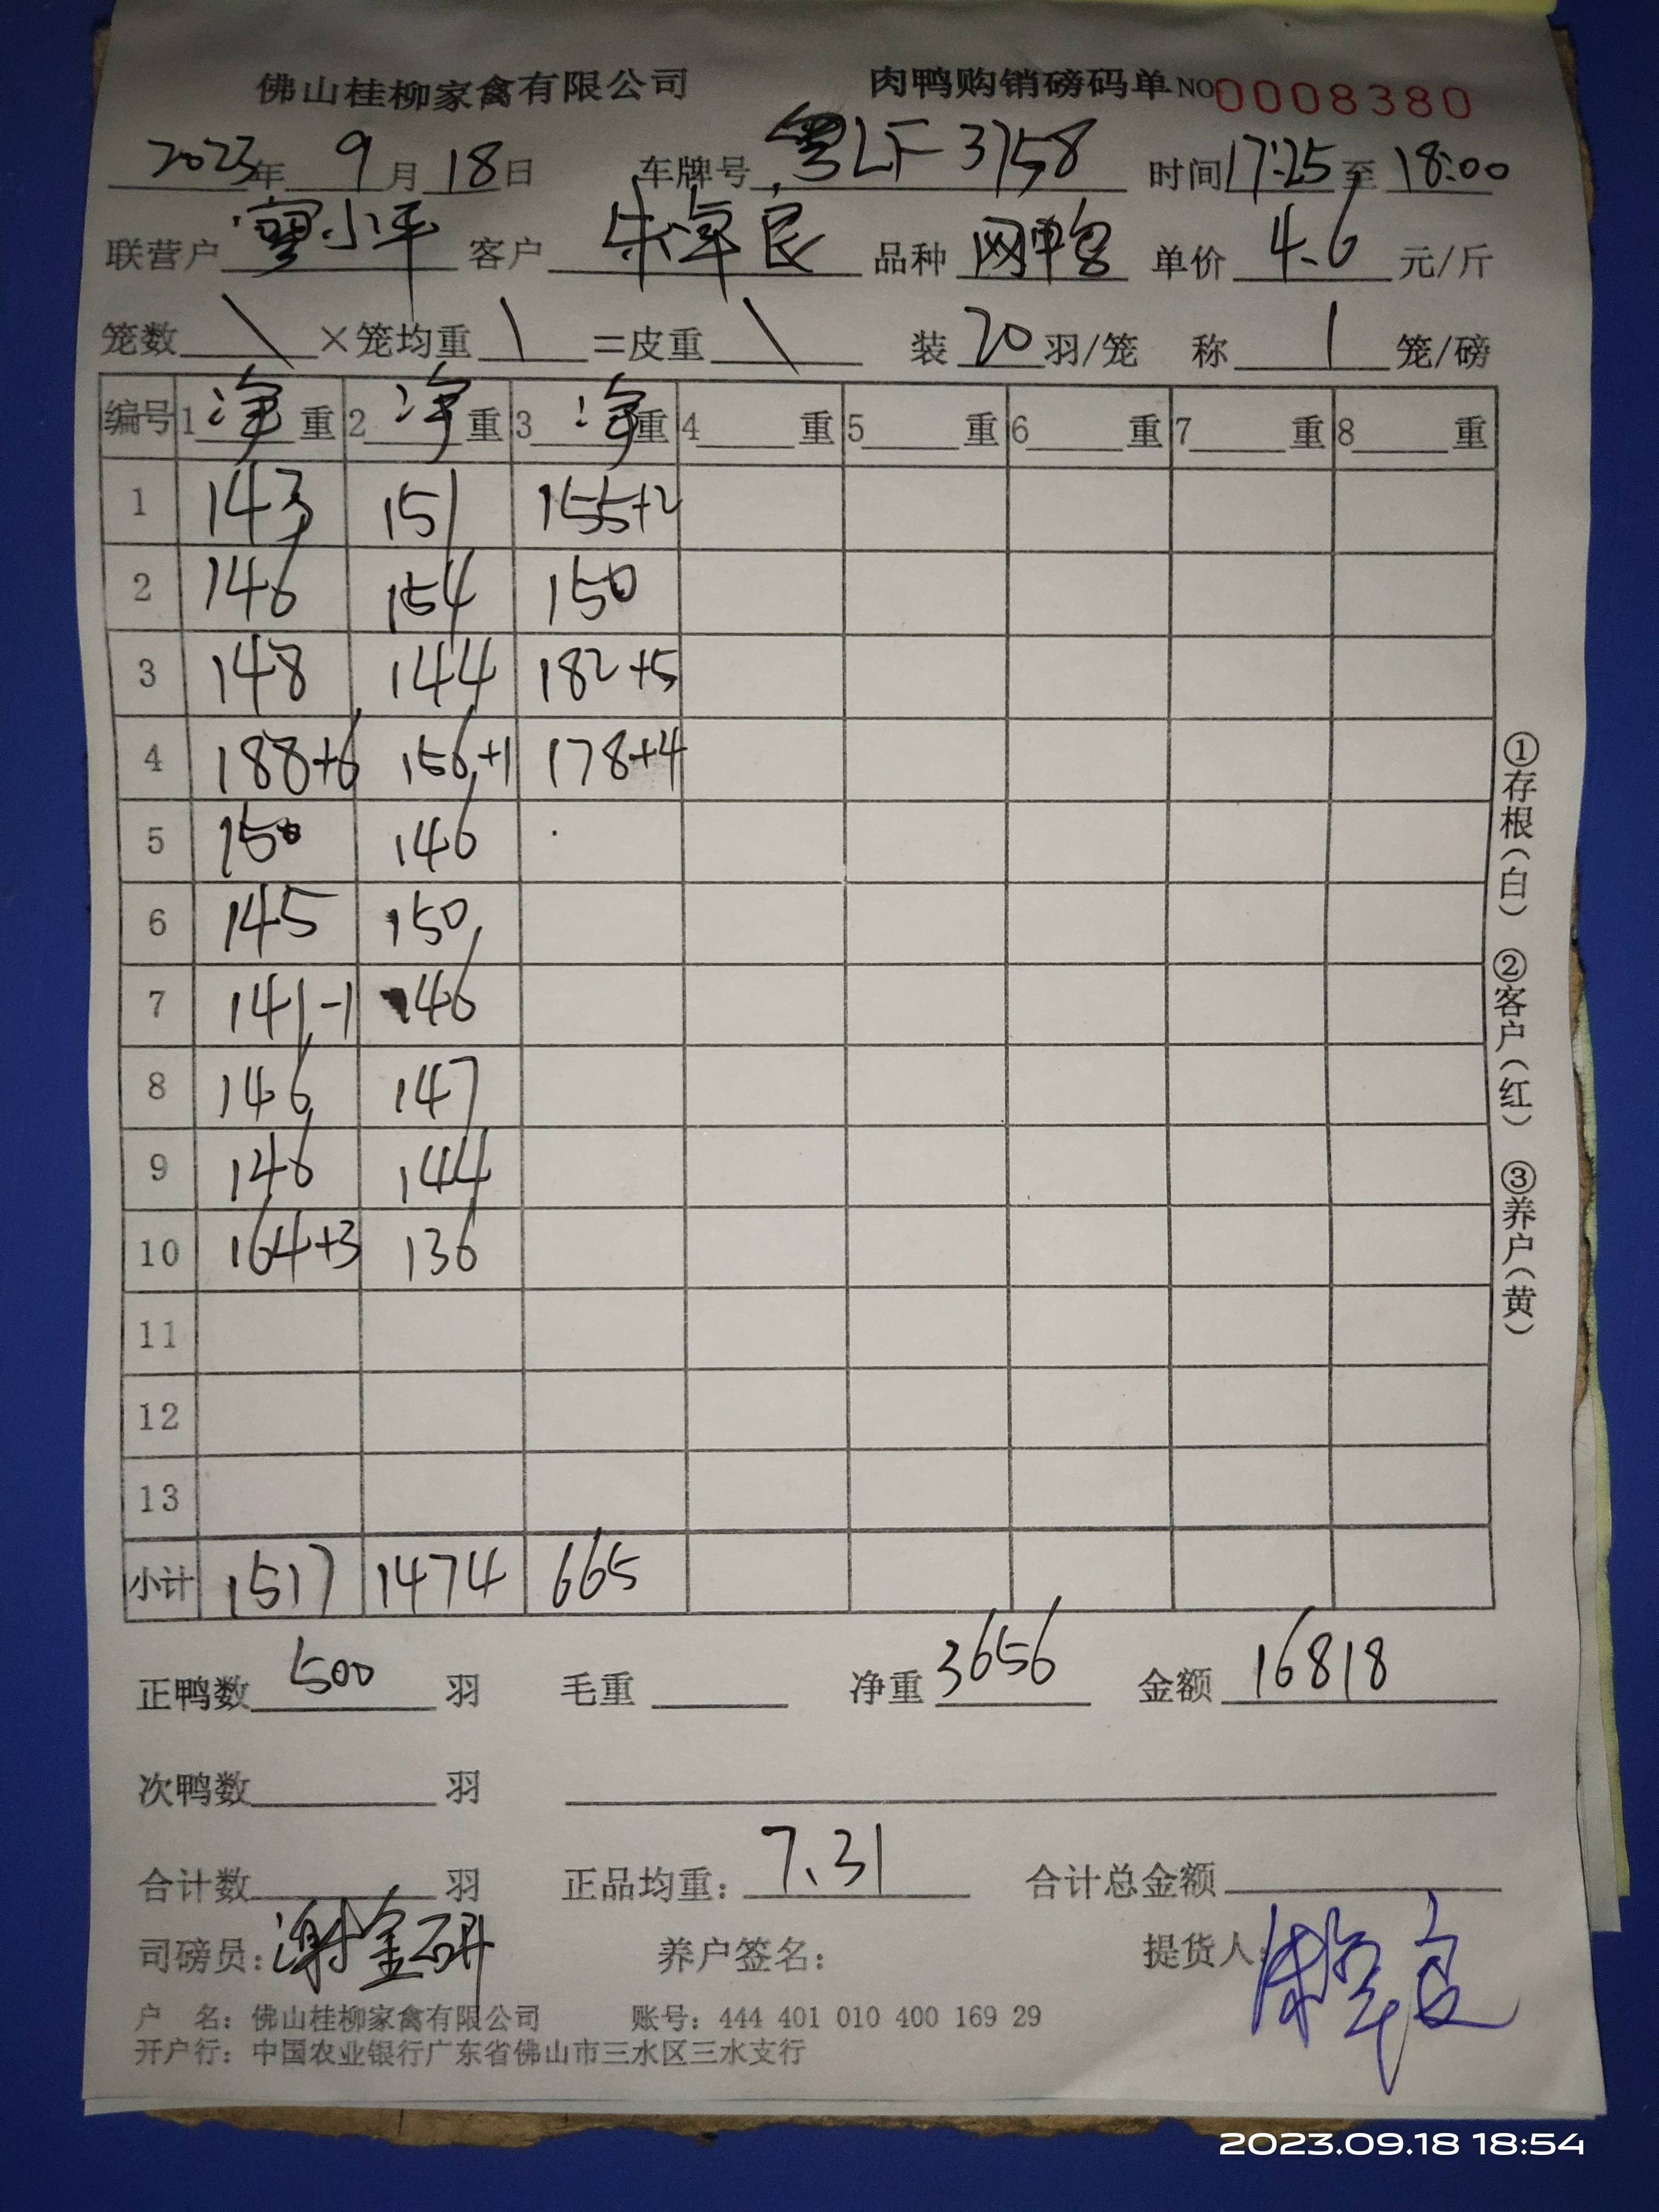 佛山桂柳家禽有限公司 肉鸭购销磅码单 NO 0008380
2023年 9月 18日 车牌号 粤LF 3758 时间 17:25 至 18:00
联营户 寥小平 客户 朱卓良 品种 网鸭 单价 4.6 元/斤
笼数 \ ×笼均重 \ =皮重 \ 装 20 羽/笼 称 1 笼/磅
编号 1 净 重 2 净 重 3 净 重 4 重 5 重 6 重 7 重 8 重
1 143 151 155+2
2 146 154 150
3 148 144 182+5
4 188+6 156+1 178+4
5 150 146
6 145 150
7 141-1 146
8 146 147
9 146 144
10 164+3 136
11
12
13
小计 1517 1474 665
正鸭数 500 羽 毛重 净重 3656 金额 16818
次鸭数 羽
合计数 羽 正品均重: 7.31 合计总金额
司磅员: 谢金研 养户签名: 提货人: 朱卓良
户 名: 佛山桂柳家禽有限公司 账号: 444 401 010 400 169 29
开户行: 中国农业银行广东省佛山市三水区三水支行
①存根(白) ②客户(红) ③养户(黄)
2023.09.18 18:54